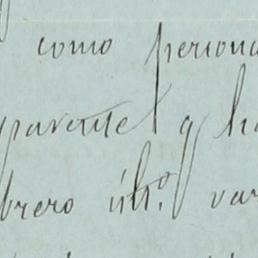 como persona
parente q ha
brero últº. var